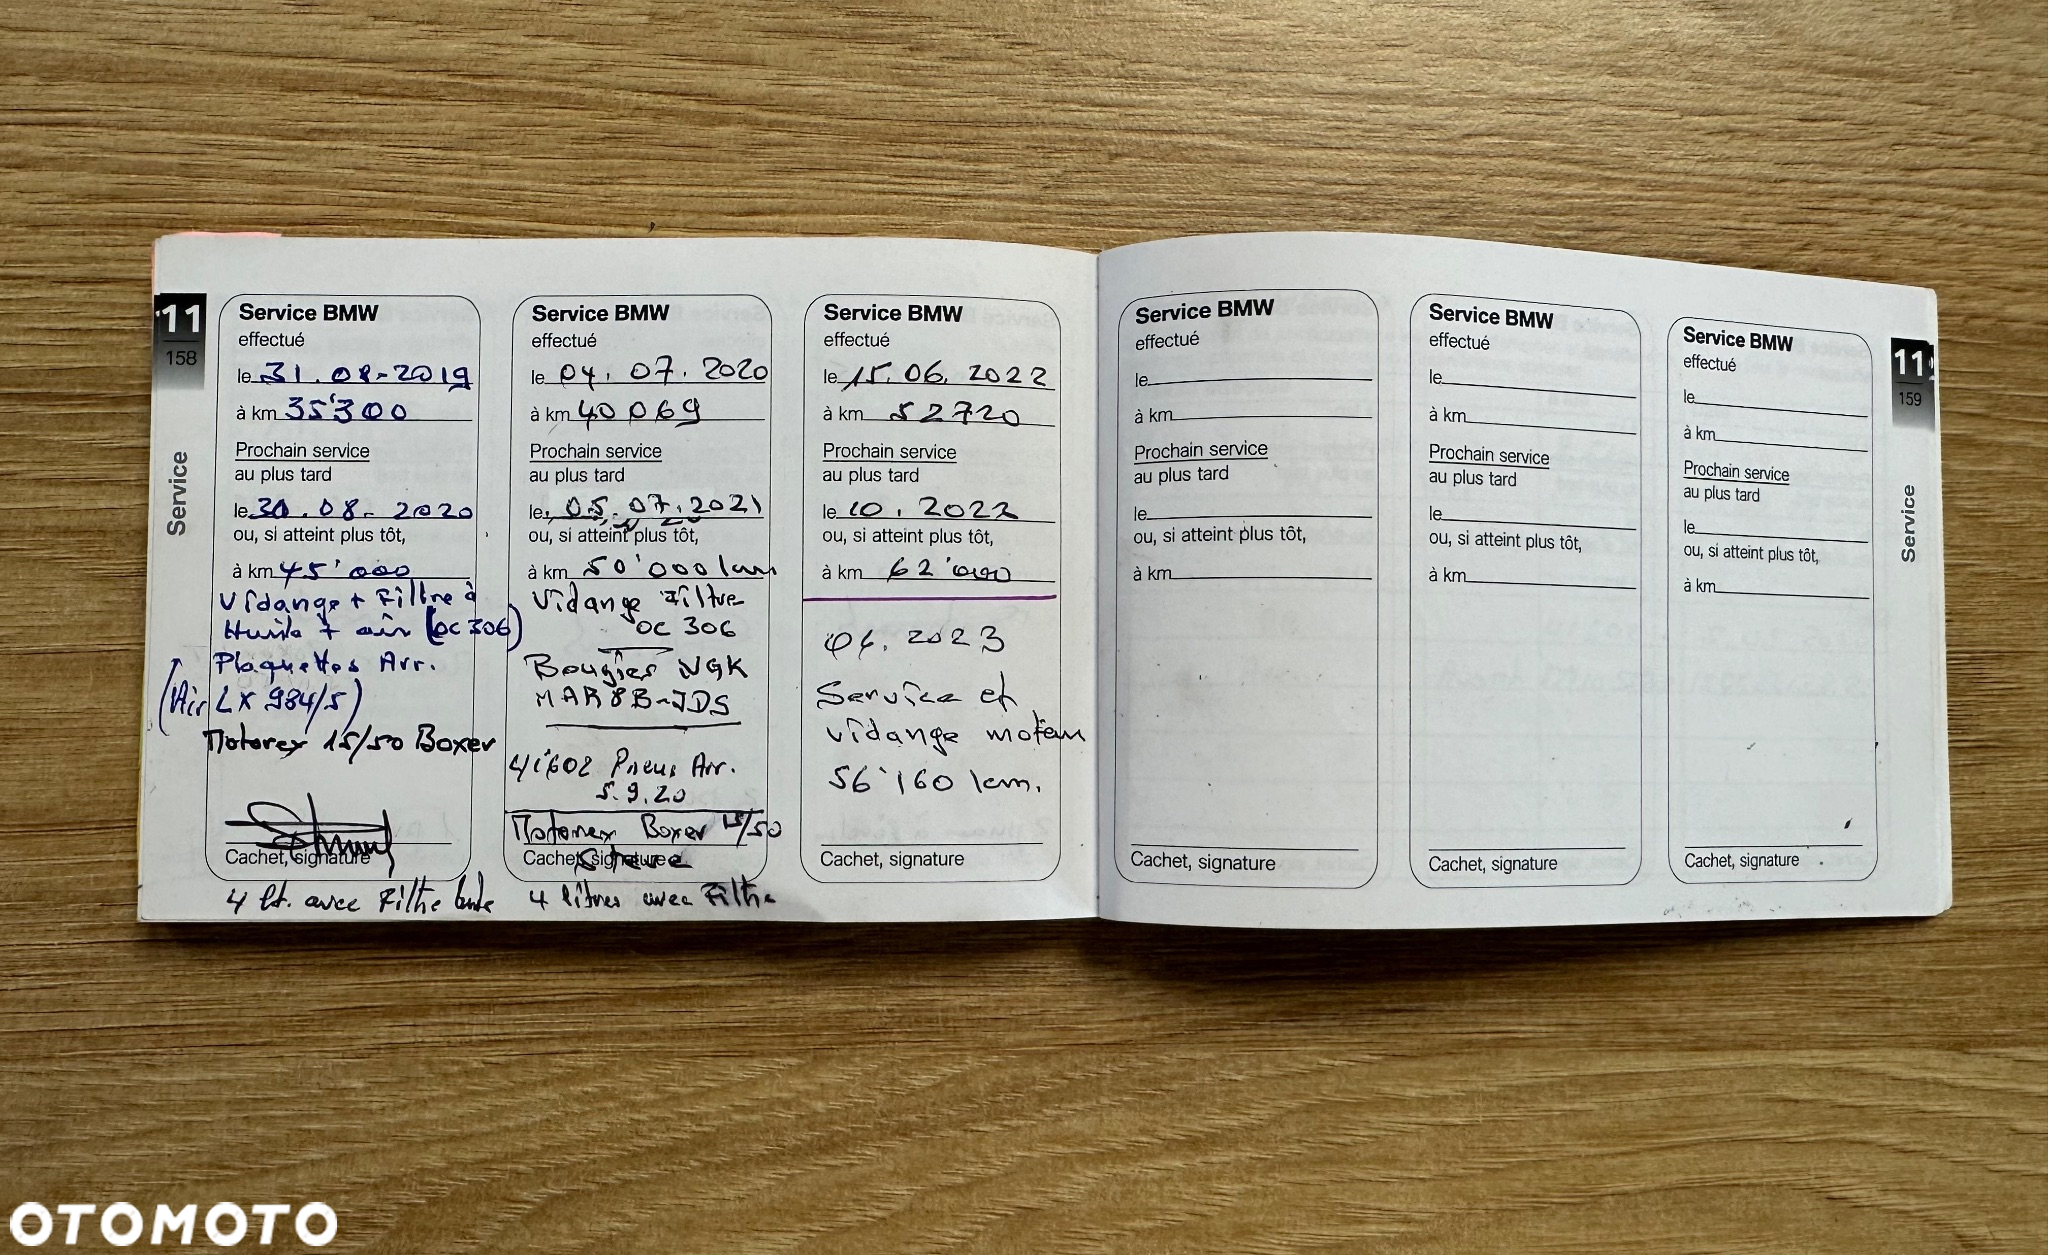 11
158
Service
Service BMW
effectué
le 31.08-2019
à km 35'300
Prochain service
au plus tard
le 30.08-2020
ou, si atteint plus tôt,
à km 45'000
Vidange + Filtre à
Huile + air (OC 306)
Plaquettes Arr.
(Air LX 984/5)
Motorex 15/50 Boxer
Cachet, signature
4 lt. avec Filtre
Service BMW
effectué
le 04.07.2020
à km 40069
Prochain service
au plus tard
le 05.07.2021
ou, si atteint plus tôt,
à km 50'000 km
Vidange Filtre
OC 306
Bougies NGK
MAR8B-JDS
41'602 Pneus Arr.
5.9.20
Motorex Boxer 15/50
Cachet, signature
4 litres avec Filtre
Service BMW
effectué
le 15.06.2022
à km 52720
Prochain service
au plus tard
le 10.2022
ou, si atteint plus tôt,
à km 62'000
06.2023
Service et
vidange moteur
56'160 km.
Cachet, signature
Service BMW
effectué
le
à km
Prochain service
au plus tard
le
ou, si atteint plus tôt,
à km
Cachet, signature
Service BMW
effectué
le
à km
Prochain service
au plus tard
le
ou, si atteint plus tôt,
à km
Cachet, signature
Service BMW
effectué
le
à km
Prochain service
au plus tard
le
ou, si atteint plus tôt,
à km
Cachet, signature
11
159
Service
OTOMOTO